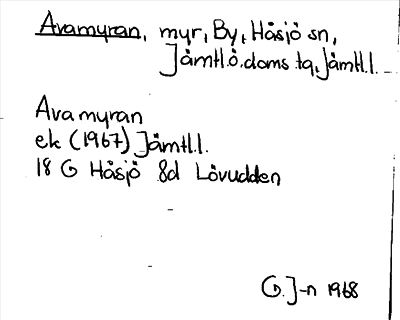 Avamyran, myr, By, Håsjö sn,
Jämtl.ö.doms.tq, Jämtl.l.
Avamyran
ek (1967) Jämtl.l.
18 G Håsjö 8d Lövudden
G.J-n 1968